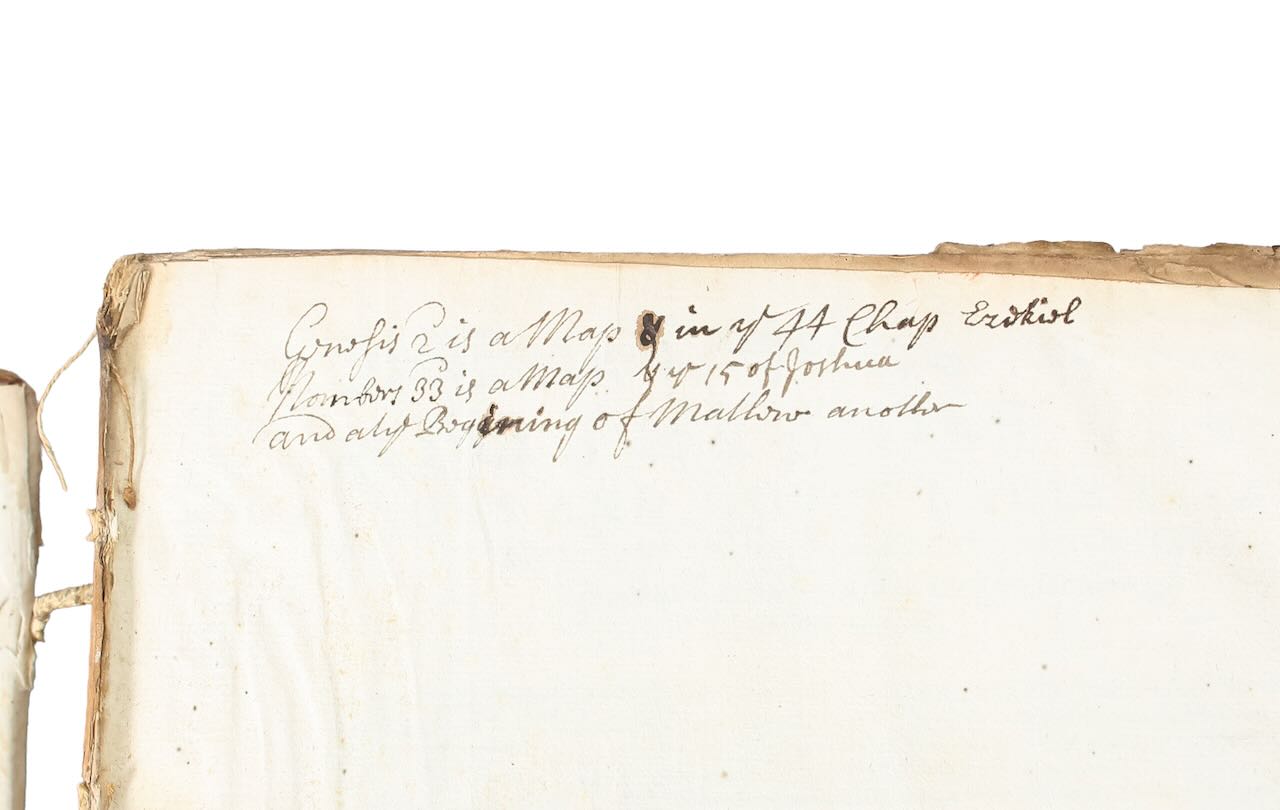 Genesis 2 is a Map & in ye 44 Chap Ezekiel
Numbers 33 is a Map ye 15 of Joshua
and at ye Begining of Mathew another